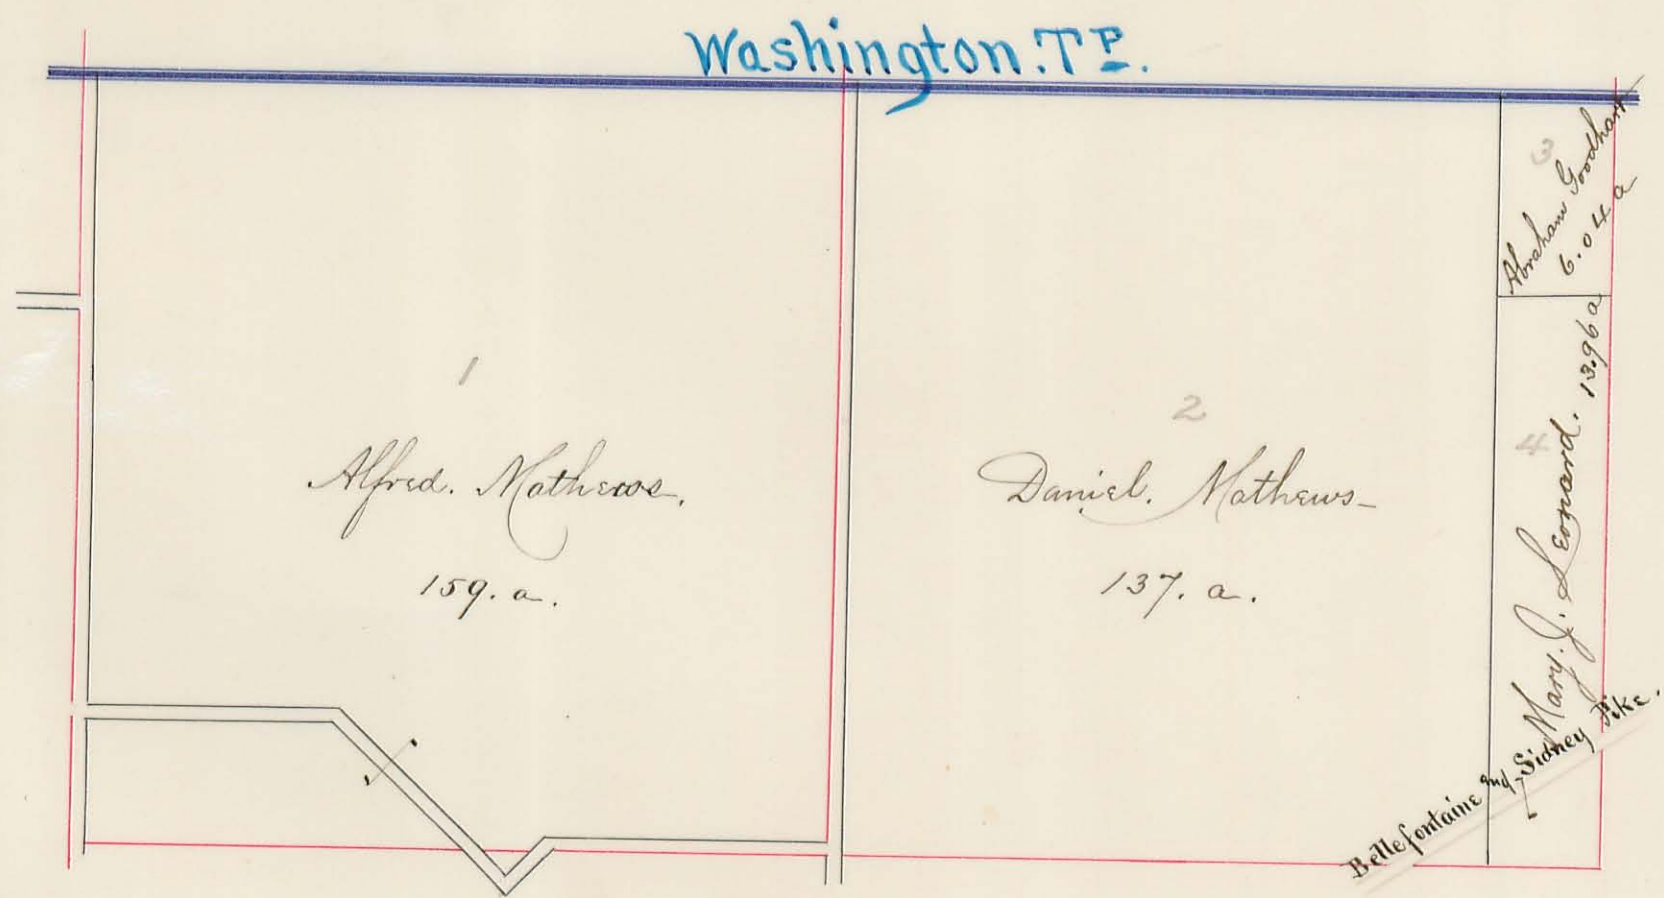 Washington. Tp.
1
Alfred. Mathews.
159. a.
2
Daniel. Mathews
137. a.
3
Abraham Goodhart
6.04 a
4
Mary. J. Leonard. 13.96 a
Bellefontaine and Sidney Pike.